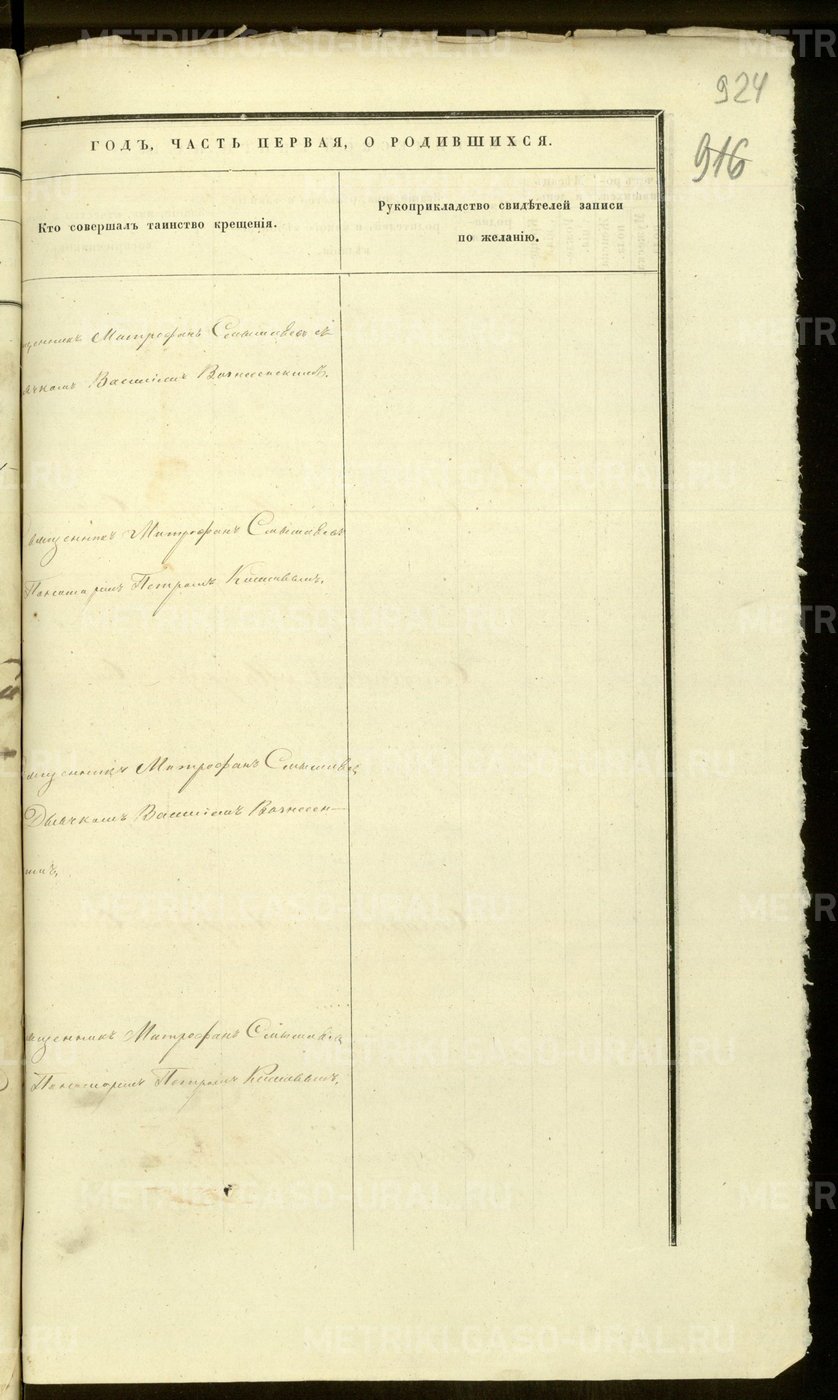 924
916
ГОДЪ, ЧАСТЬ ПЕРВАЯ, О РОДИВШИХСЯ.
Кто совершалъ таинство крещенія.
Рукоприкладство свидѣтелей записи
по желанію.
щенникъ Митрофанъ съ
ячкомъ Василіемъ Вознесенскимъ.
ященникъ Митрофанъ
Пономаремъ Петромъ
ященникъ Митрофанъ
Дьячкомъ Василіемъ Вознесен-
кимъ,
ященникъ Митрофанъ
Пономаремъ Петромъ
METRIKI.GASO-URAL.RU